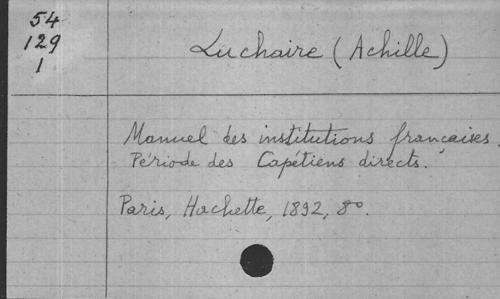 54
129
1
Luchaire (Achille)
Manuel des institutions françaises.
Période des Capétiens directs.
Paris, Hachette, 1892, 8°.